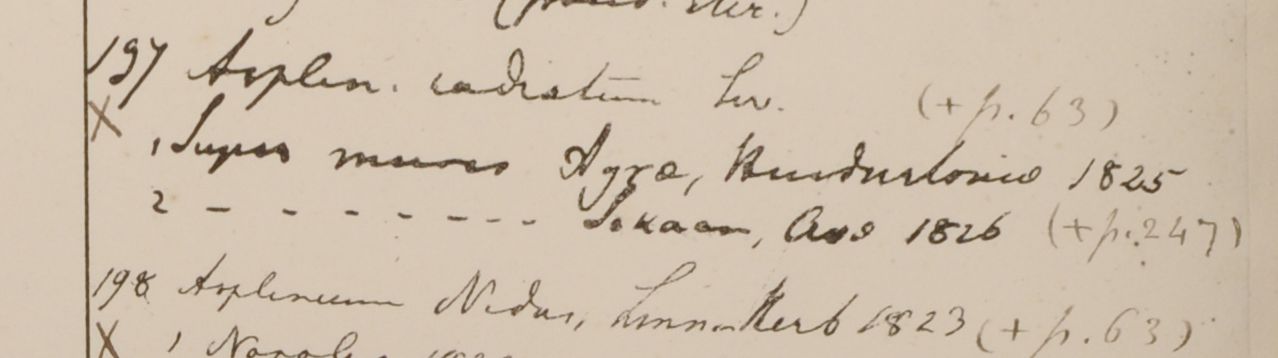 197 Asplen. radiatum Sw. (+ p. 63)
X
1 Super muros Agra, Hindustonia 1825
2 - - - - - - - - Sekaan, Ava 1826 (+ p. 247)
198 Asplenium Nidus, Linn. Herb 1823 (+ p. 63)
X 1